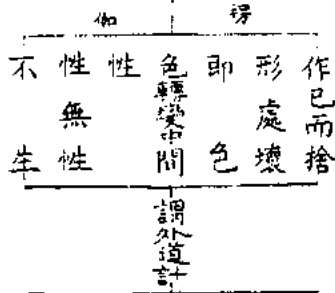 楞伽
作已而捨
形處壞
即色
色轉變中間
性
性無性
不生
謂外道計